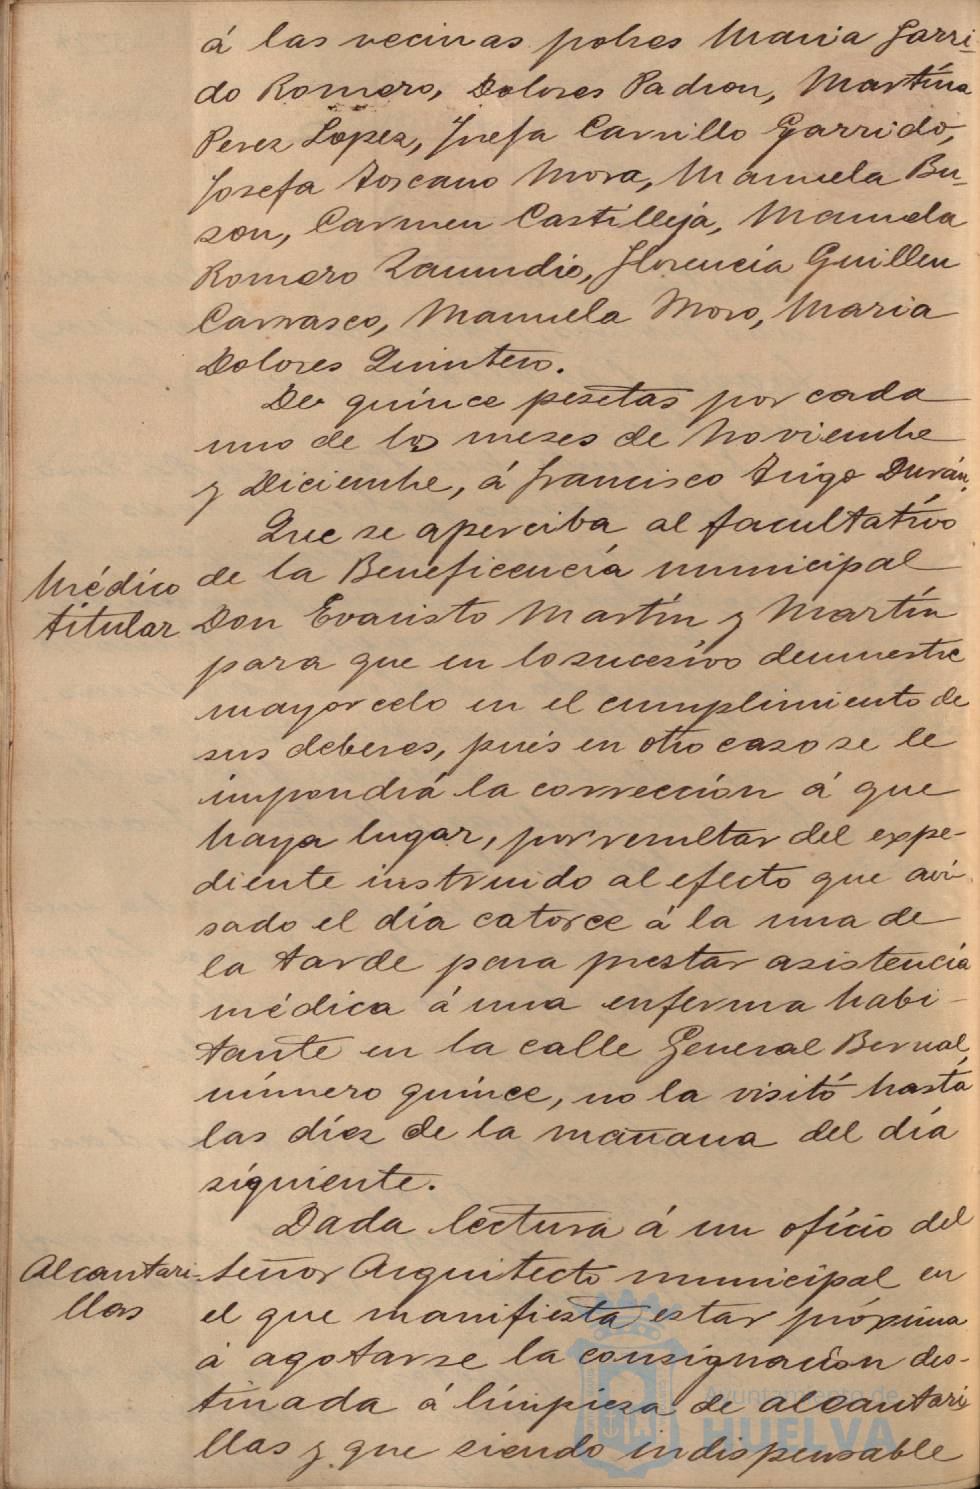 á las vecinas pobres Maria Garri-
do Romero, Dolores Padron, Martína
Perez Lopez, Josefa Carrillo Garrido,
Josefa Toscano Mora, Manuela Bu-
son, Carmen Castilleja, Manuela
Romero Zamudio, Florencia Guillen
Carrasco, Manuela Moro, Maria
Dolores Quintero.
De quince pesetas por cada
uno de los meses de Noviembre
y Diciembre, á Francisco Trigo Durán.
Que se aperciba al facultativo
Médico
titular
de la Beneficencia municipal
Don Evaristo Martín y Martín
para que en lo sucesivo demuestre
mayor celo en el cumplimiento de
sus deberes, pues en otro caso se le
impondrá la corrección á que
haya lugar, por resultar del expe-
diente instruido al efecto que avi-
sado el día catorce á la una de
la tarde para prestar asistencia
médica á una enferma habi-
tante en la calle General Bernal,
número quince, no la visitó hasta
las diez de la mañana del día
siguiente.
Dada lectura á un oficio del
Alcantari-
llas
Señor Arquitecto municipal en
el que manifiesta estar próxima
á agotarse la consignación des-
tinada á limpieza de alcantari
llas y que siendo indispensable
Ayuntamiento de
HUELVA